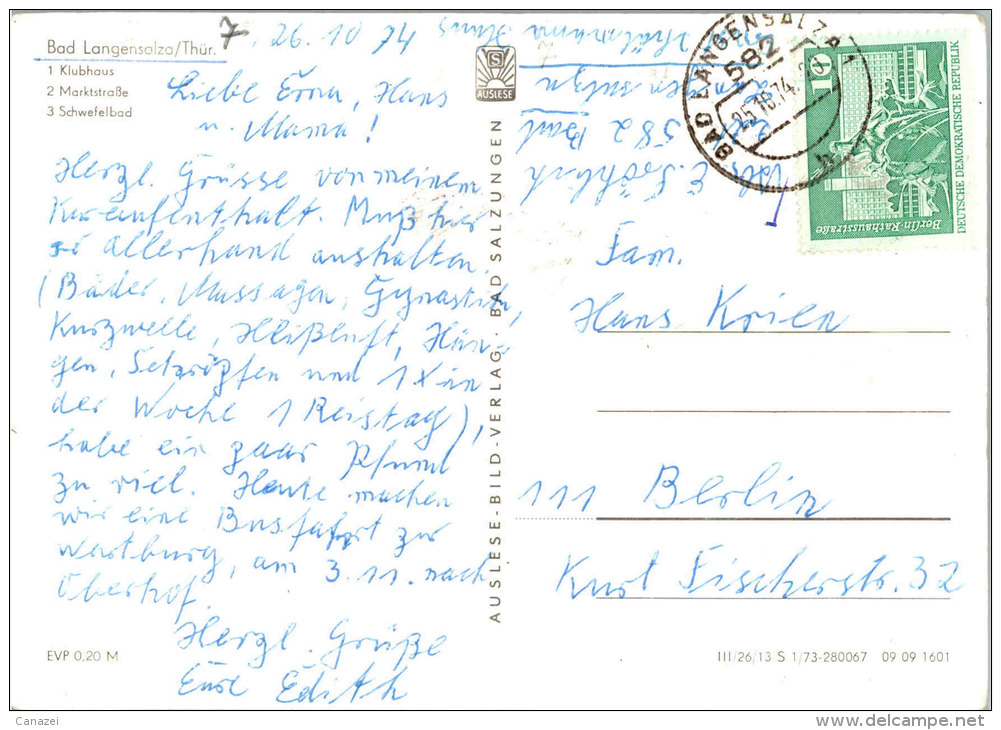 Bad Langensalza/Thür.
1 Klubhaus
2 Marktstraße
3 Schwefelbad
7. 26. 10 74
Liebe Erna, Hans
u. Mama!
Herzl. Grüsse von meinem
Kuraufenthalt. Muß hier
so allerhand aushalten.
(Bäder, Massagen, Gynastik,
Kurzwelle, Heißluft, Hän-
gen, Setzröpfen und 1 X in
der Woche 1 Reistag),
habe ein paar Pfund
zu viel. Heute machen
wir eine Busfahrt zur
Wartburg, am 3. 11. nach
Oberhof.
Herzl. Grüße
Eure Edith
EVP 0,20 M
AUSLESE
AUSLESE-BILD-VERLAG · BAD SALZUNGEN
Abs. E. Fröhlich
582 Bad
Langensalza
Haus
BAD LANGENSALZA 1
582
25.10.74
10
Berlin-Rathausstraße
DEUTSCHE DEMOKRATISCHE REPUBLIK
Fam.
Hans Krien
111 Berlin
Kurt Fischerstr. 32
III/26/13 S 1/73-280067 09 09 1601
Canazei
www.delcampe.net